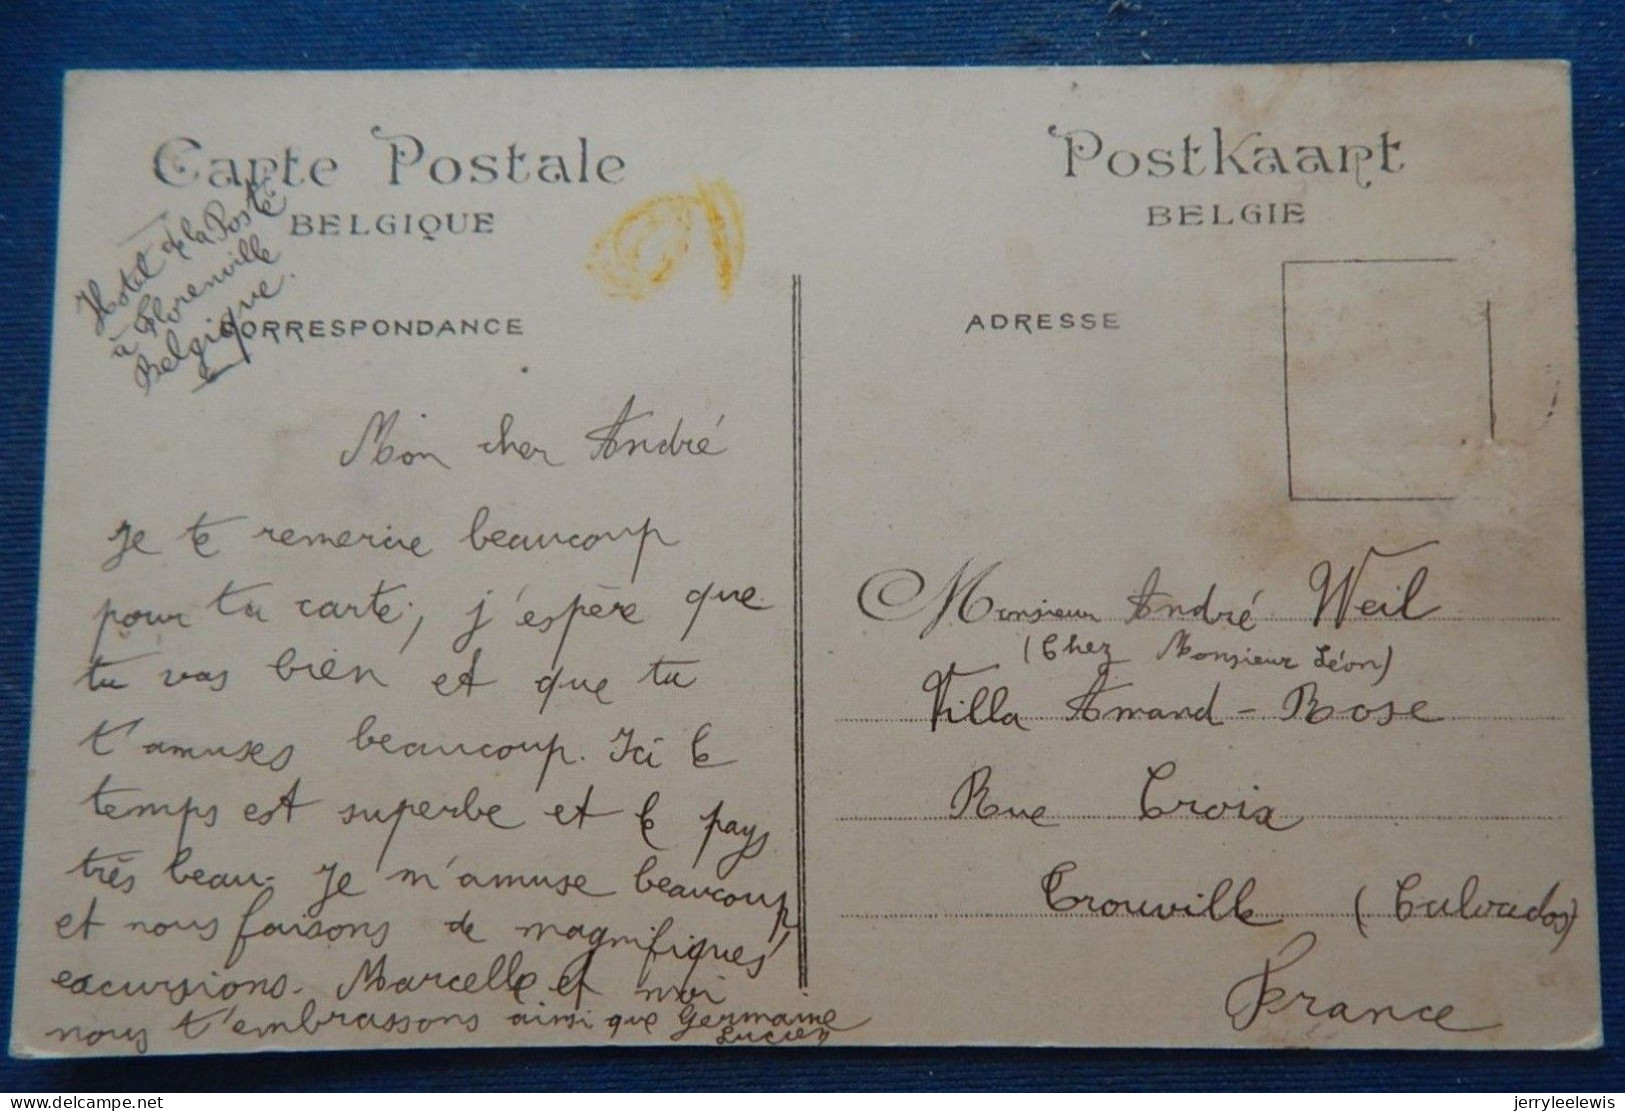 Carte Postale
BELGIQUE
Hotel de la Poste
à Florenville
Belgique.
CORRESPONDANCE
Mon cher André
Je te remercie beaucoup
pour ta carte, j'espère que
tu vas bien et que tu
t'amuses beaucoup. Ici le
temps est superbe et le pays
très beau. Je m'amuse beaucoup
et nous faisons de magnifiques
excursions. Marcelle et moi
nous t'embrassons ainsi que Germaine
Lucien
Postkaart
BELGIE
ADRESSE
Monsieur André Weil
(Chez Monsieur Léon)
Villa Amand-Rose
Rue Croix
Trouville (Calvados)
France
delcampe.net
jerryleelewis